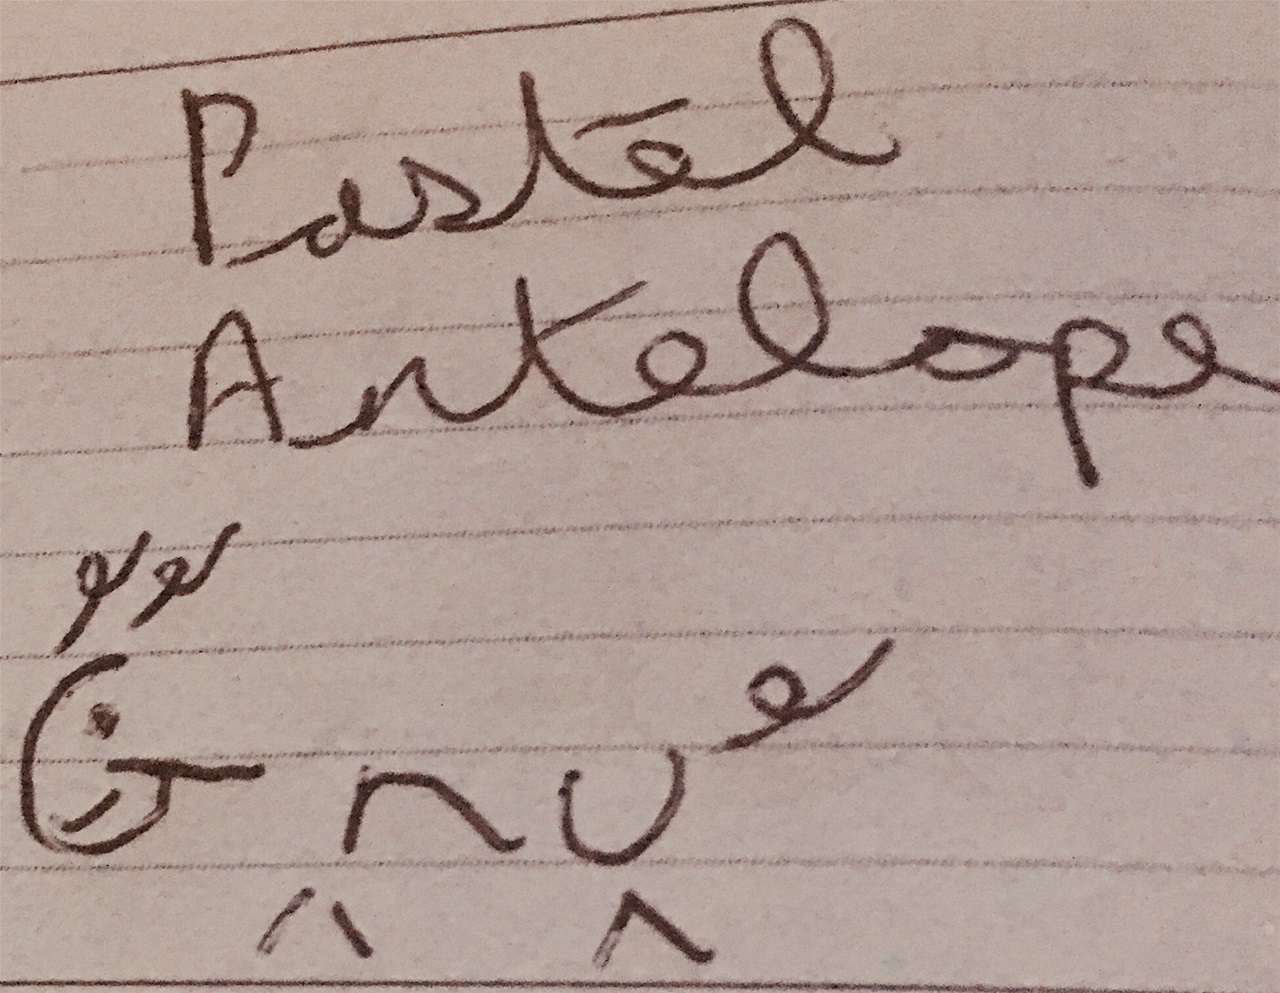 Pastel
Antelope
Gnu